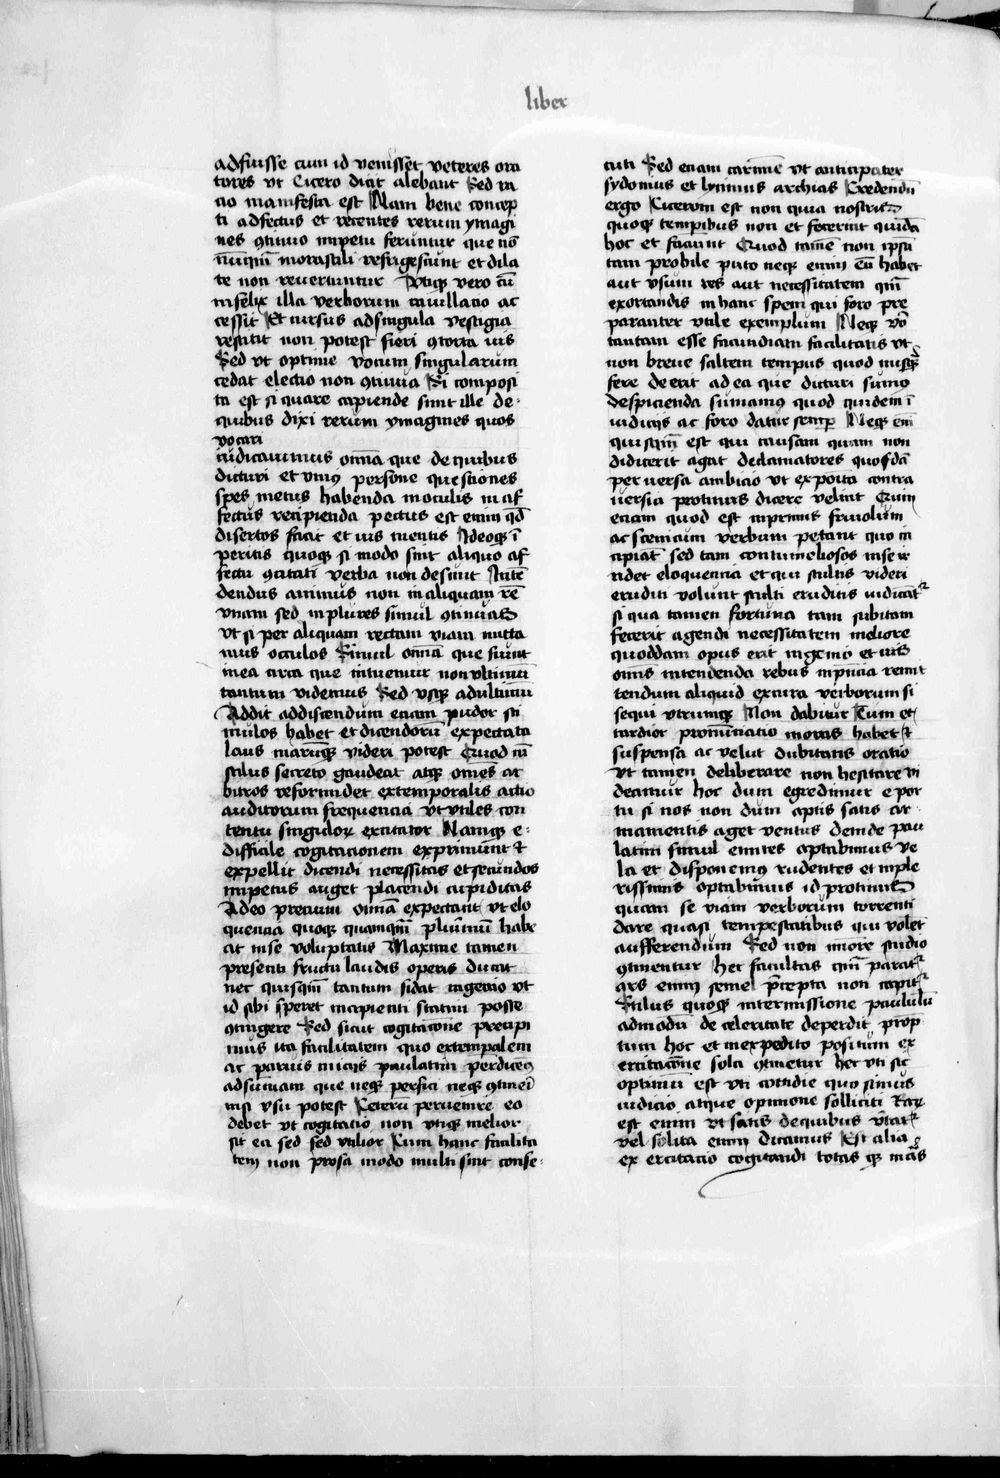 liber
adfuisse cum id venisset veteres ora
tores vt Cicero dicit alebant Sed ra
cio manifesta est Nam bene concep
ti adfectus et recentes rerum ymagi
nes ↄtinuo impetu feruntur que nō
nūqm̄ mora stili refrigescunt et dila
te non reuertuntur Vtiqꝫ vero cū
infelix illa verborum cauillatio ac
cessit Et cursus ad singula vestigia
restitit non potest fieri ↄtorta uis
Sed vt optime vocum singularum
cedat electio non ↄtinua Si composi
ta est si quare capiende sunt ille de
quibus dixi rerum ymagines quos
vocari
iudicauimus om̄ia que de quibus
dicturi et vniꝰ persone questiones
spes metus habenda in oculis in af
fectus recipienda pectus est enim qd̄
disertos facit et uis mentis Ideoqꝫ ī
peritis quoqꝫ si modo sint aliquo af
fectu ↄcitati verba non desunt Intē
dendus animus non in aliquam rē
vnam sed in plures simul ↄtinuas
vt si per aliquam rectam viam mitta
mus occulos Simul om̄ia que sunt
inea circa que intuemur non vltimū
tantum videmus Sed vsqꝫ ad ultimū
Addit ad discendum etiam pudor sti
mulos habet et dicendorū expectata
laus mirūqꝫ videri potest Quod cū
stilus secreto gaudeat atqꝫ omēs ar
bitros reformidet extemporalis actio
auditorum frequencia vt vtiles con
tentu singuloꝝ excitator Namqꝫ e
difficile cogitacionem exprimunt et
expellit dicendi necessitas et secundos
impetus auget placendi cupiditas
Adeo precium om̄ia expectant vt elo
quencia quoqꝫ quamqm̄ plurimū habe
at in se voluptatis Maxime tamen
presenti fructu laudis operis ducat
nec quisqm̄ tantum fidat ingenio vt
id sibi speret incipienti statim posse
ↄtingere Sed sicut cogitacione precipi
mus ita facilitatem quo extempalem
ac paruis iniciis paulatim perducemꝰ
ad sūmam que neqꝫ perfici neqꝫ ↄtineri
nisi vsu potest Ceterū peruenire eo
debet vt cogitacio non vtiqꝫ melior
sit ea sed sed vtilior Cum hanc facilita
tem non prosa modo multi sint conse
cuti Sed etiam carmīe vt anticipater
sydonius et lynnius archias Credendū
ergo Ciceroni est non quia nostris
quoqꝫ temporibus non et fecerint quidā
hoc et faciunt Quod tamē non ipsū
tam probile puto neqꝫ enim eū habet
aut vsum res aut necessitatem qm̄
exortandis in hanc spem qui foro pre
parantur vtile exemplum Neqꝫ vō
tantam esse facundiam facilitatis vt
non breue saltem tempus quod nusqꝫ
fere deerit ad ea que dicturi sumꝰ
despicienda sumamꝰ quod quidem ī
iudiciis ac foro datur semp Neqꝫ em̄
quisqm̄ est qui causam quam non
didicerit agat declamatores quosdā
peruersa ambicio vt exposita contra
uersia protinus dicere velint Quin
etiam quod est inprimis friuolum
ac scenicum verbum petant quo in
cipiāt sed tam contumeliosos inse ir
ridet eloquencia et qui stultis videri
eruditi volunt stulti eruditis iudicāt
si qua tamen fortuna tam subitam
fecerit agendi necessitatem meliore
quoddam opus erit ingenio et uis
omīs intendenda rebus inpn̄cia remit
tendum aliquid ex cura verborum si
sequi vtrumqꝫ Non dabitur Cum et
tardior pronūtiatio moras habet et
suspensa ac velut dubitatis oratio
vt tamen deliberare non hesitare vi
deamur hoc dum egredimur e por
tu si nos non dum aptis satis ar
mamentis aget ventus deinde pau
latim simul euntes aptabimus ve
la et disponemꝰ rudentes et imple
rissimis optabimus id protinus
quam se viam verborum torrenti
dare quasi tempestatibus qui volet
aufferendum Sed non iniore studio
ↄtinentur hec facultas qm̄ parat
ars enim semel p̄cepta non capit
Stilus quoqꝫ intermissione paululū
admodū de celeritate deperdit prop
tum hoc et inexpedito positum ex
ercitacōne sola ↄtinetur hec vti sic
optimū est vti cotidie quo simus
iudicio atque opinione solliciti Raꝝ
est enim vt satis de quibus vtar
vel solita enim dicamus Est alia
ex ercitacio cogitandi totas qꝫ mā̄s